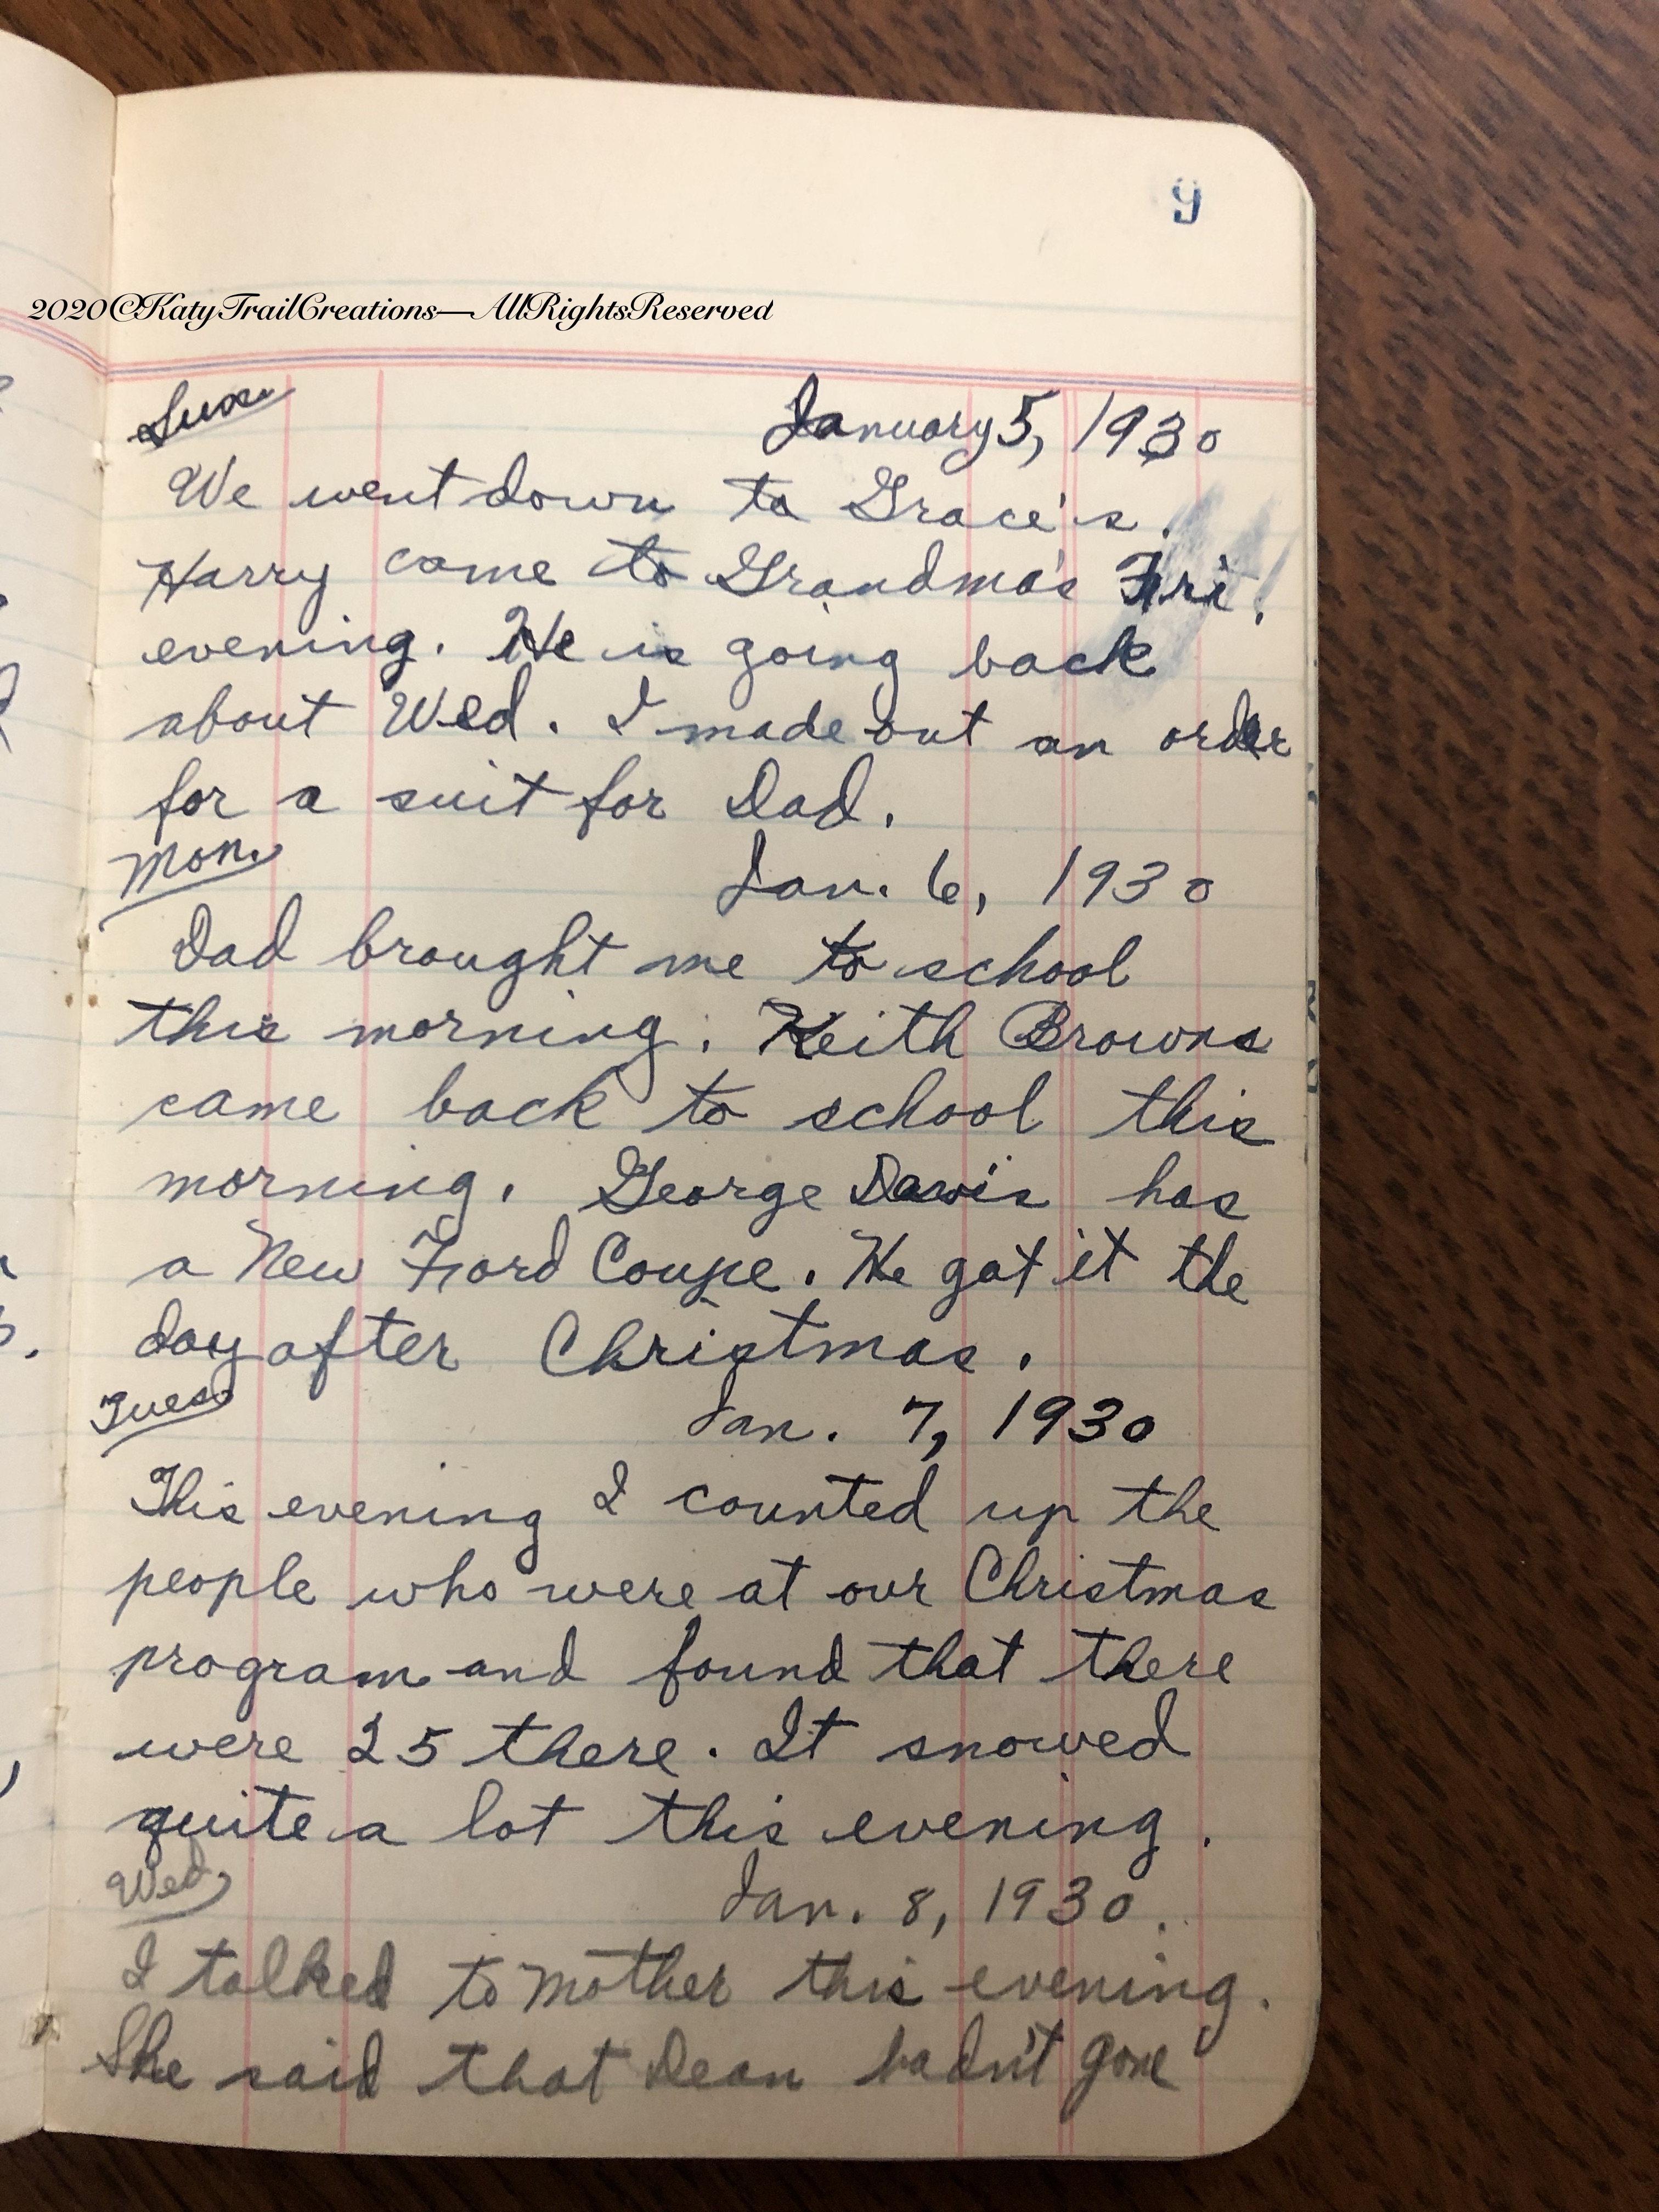 9
2020©KatyTrailCreations—AllRightsReserved
Sun. January 5, 1930
We went down to Grace's.
Harry came to Grandma's Fri.
evening. He is going back
about Wed. I made out an order
for a suit for Dad.
Mon. Jan. 6, 1930
Dad brought me to school
this morning. Keith Browns
came back to school this
morning. George Davis has
a New Ford Coupe. He got it the
day after Christmas.
Tues. Jan. 7, 1930
This evening I counted up the
people who were at our Christmas
program and found that there
were 25 there. It snowed
quite a lot this evening.
Wed. Jan. 8, 1930.
I talked to Mother this evening.
She said that Dean hadn't gone